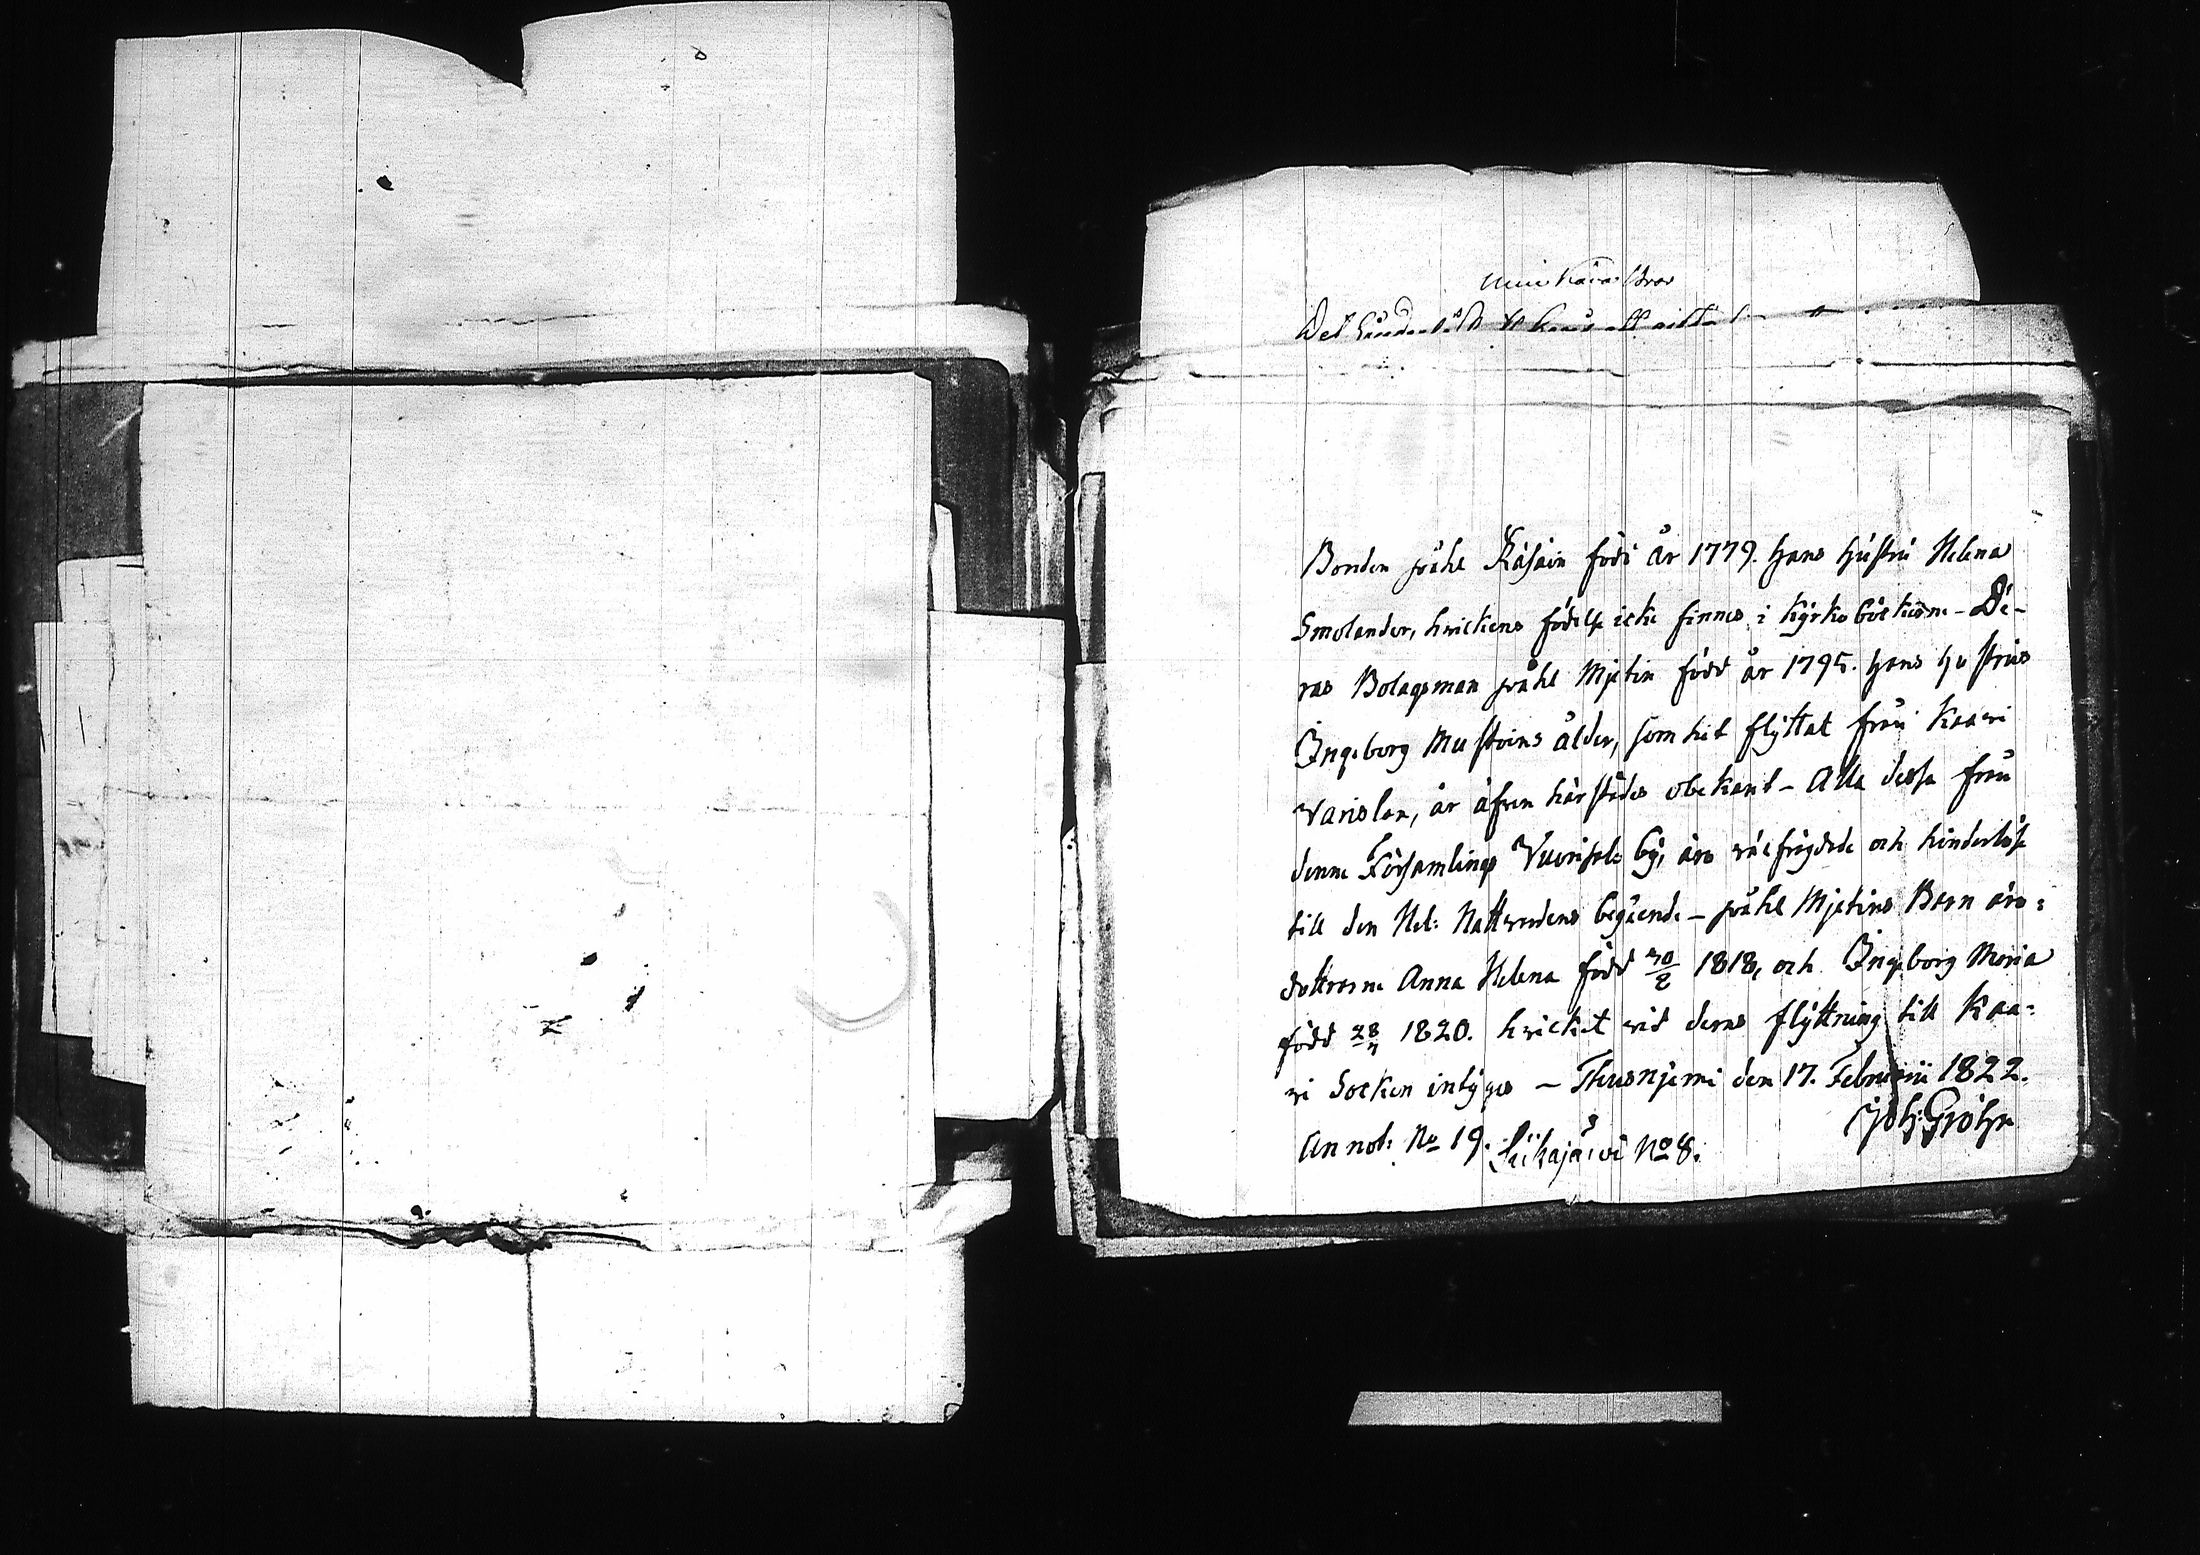 min kära Bror
Det
Bonden påhl Räsäin född år 1779. hans hustru Helena
Smolander, hvickens födelse icke finnes i kÿrko böckerne - Dé-
ras Bolagsman påhl Mjetin född år 1795. hans hustrus
Ingeborg Mustoins ålder, som hit flÿttat från Kaavi
är äfven härstädes obekant - Alla dessa från
denne Församlings by, äro välfrigdade och hinderlöse
till den Hel: Nattvardens begående - påhl Mjetins Barn äro:
dottrarne Anna Helena född 1818, och Ingeborg Maria
född 1820. hvicket vid deras flÿttning till Kaa-
vi Socken intÿgas - Thusnjemi den 17. Februarii 1822.
Joh: Gröhn
Annot: No 19. Siikajärvi No 8.